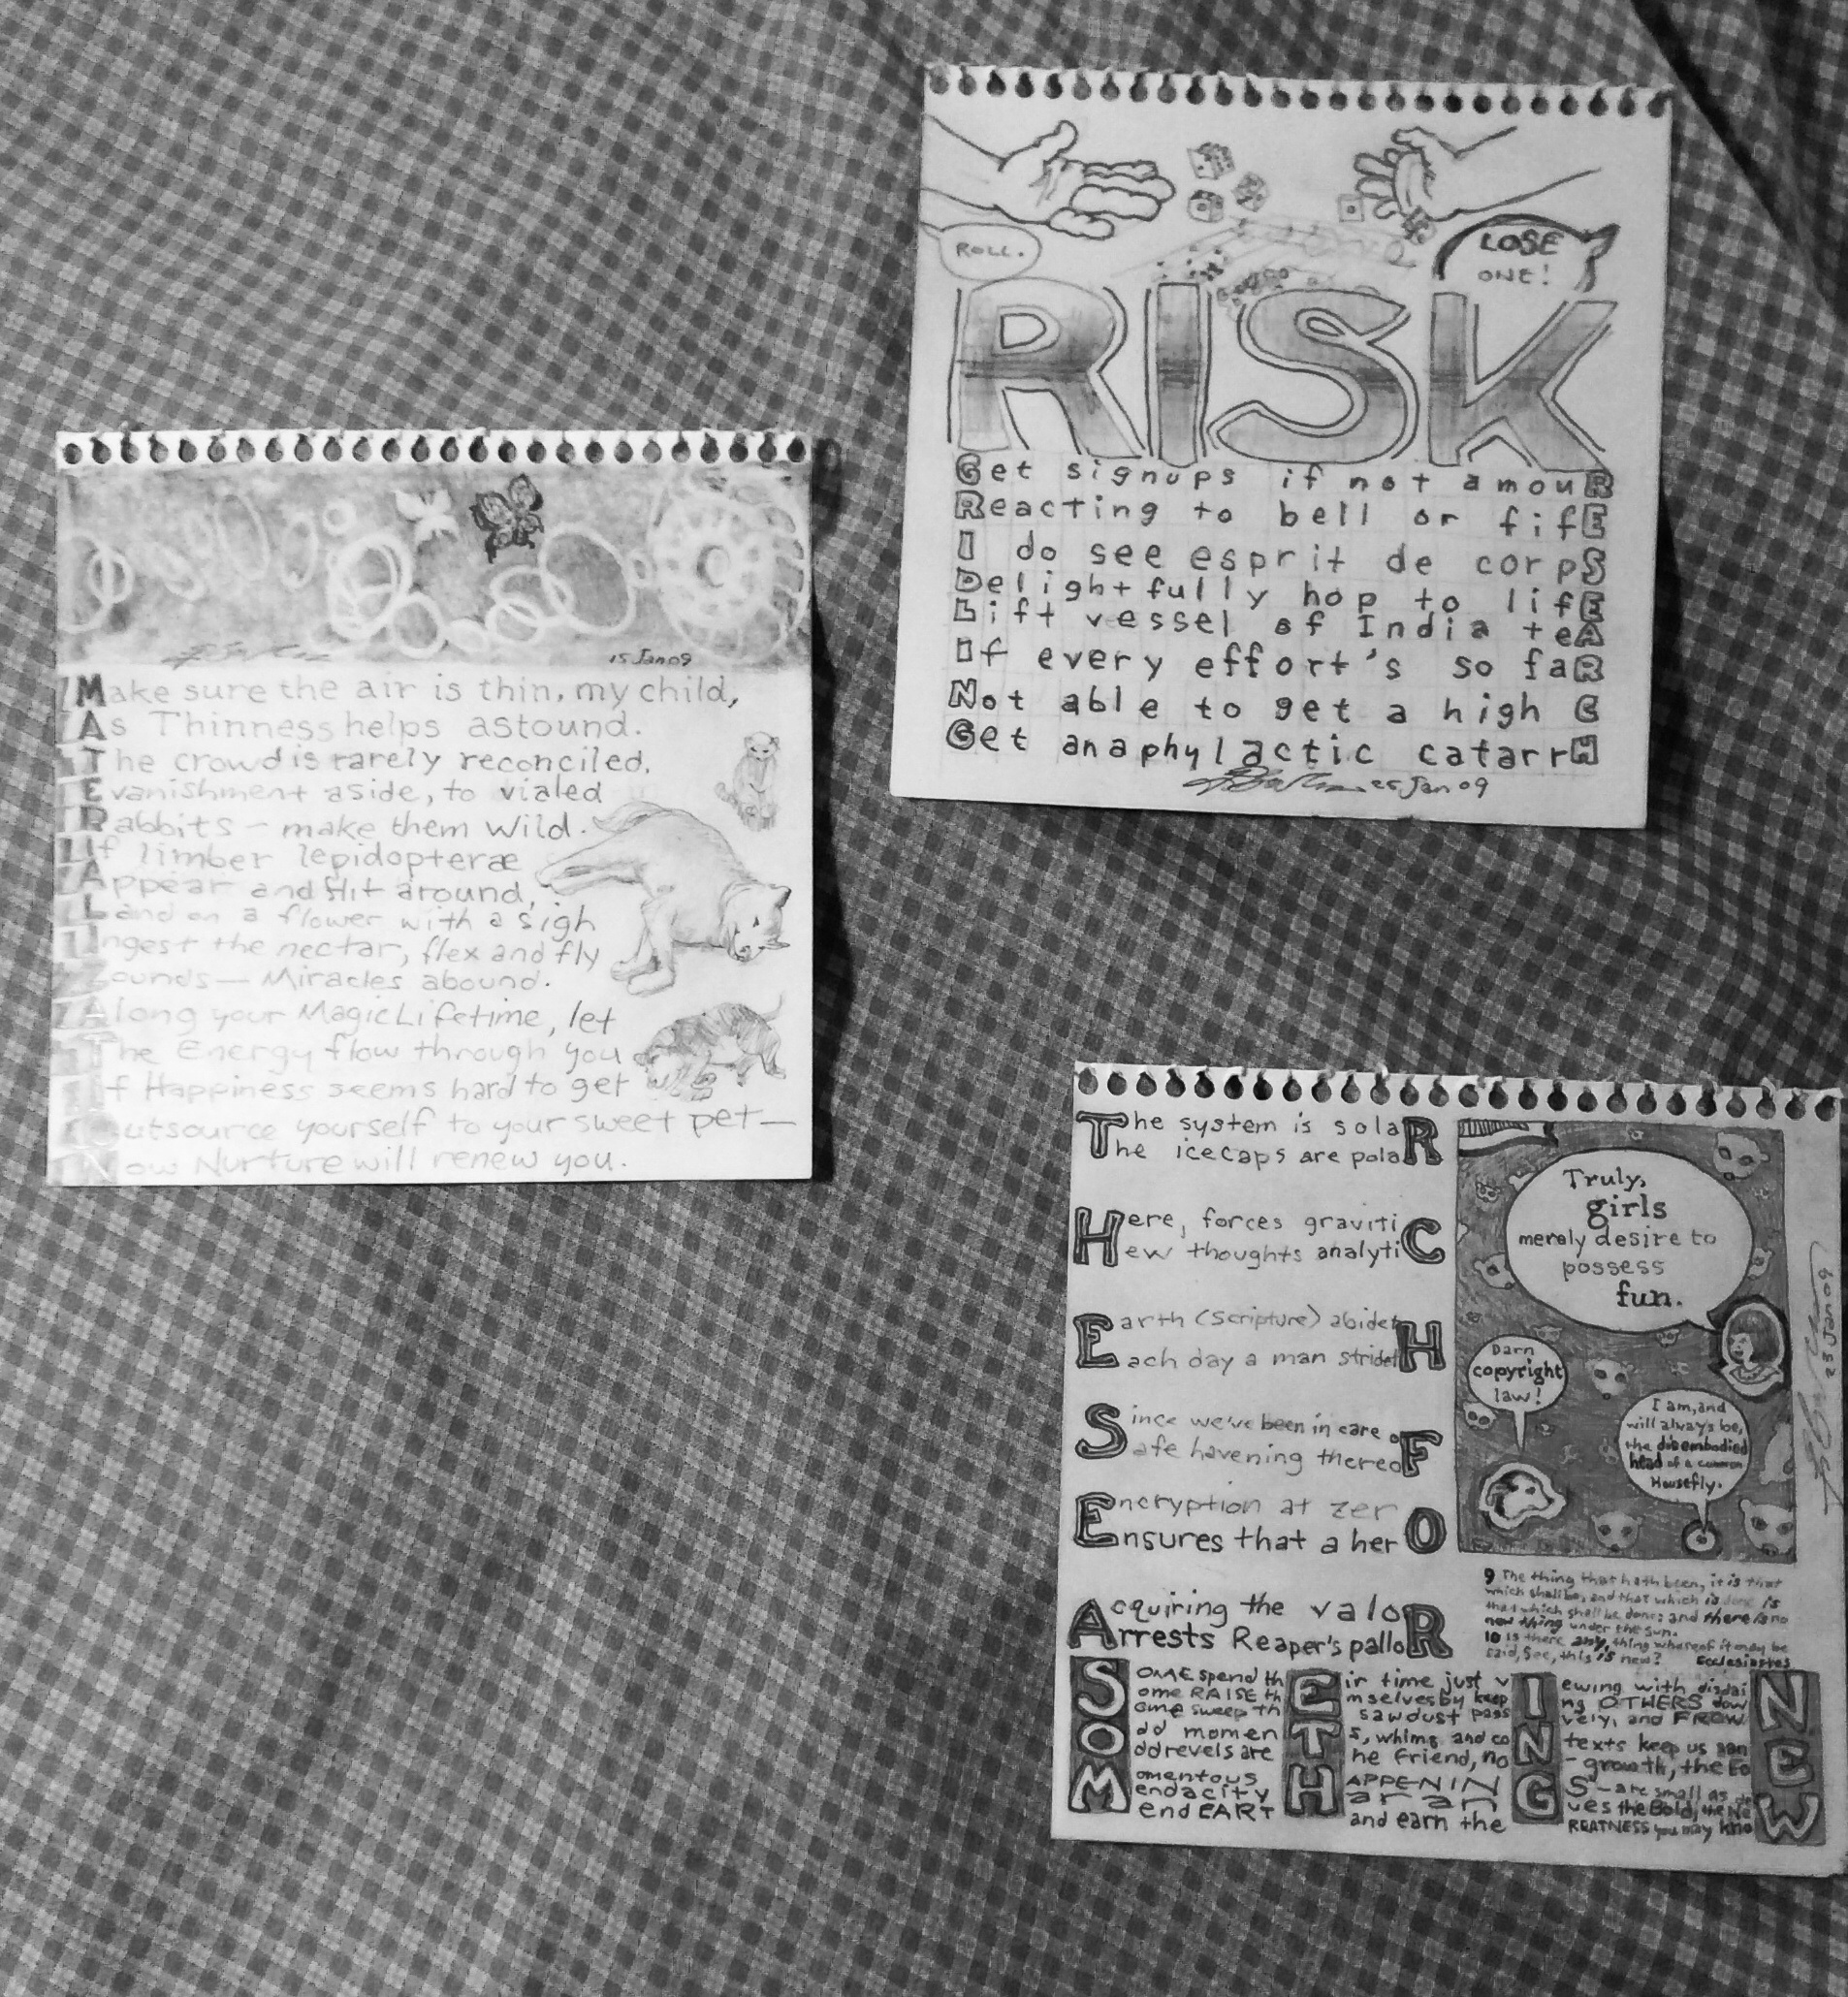 15 Jan 09
Make sure the air is thin, my child,
As Thinness helps astound.
The crowd is rarely reconciled,
Evanishment aside, to vialed
Rabbits — make them wild.
If limber lepidopteræ
Appear and flit around,
Land on a flower with a sigh
Ingest the nectar, flex and fly
Zounds — Miracles abound.
Along your Magic Lifetime, let
The Energy flow through you
If Happiness seems hard to get
Outsource yourself to your sweet pet —
Now Nurture will renew you.
ROLL.
LOSE
ONE!
RISK
Get signups if not amouR
Reacting to bell or fifE
I do see esprit de corpS
Delightfully hop to lifE
Lift vessel of India teA
If every effort's so faR
Not able to get a high C
Get anaphylactic catarrH
25 Jan 09
The system is solaR
The icecaps are polaR
Here, forces gravitiC
Hew thoughts analytiC
Earth (Scripture) abidetH
Each day a man stridetH
Since we've been in care oF
Safe havening thereoF
Encryption at zerO
Ensures that a herO
Acquiring the valoR
Arrests Reaper's palloR
Truly,
girls
merely desire to
possess
fun.
Darn
copyright
law!
I am, and
will always be,
the disembodied
head of a common
Housefly.
25 Jan 09
9 The thing that hath been, it is that
which shall be; and that which is done is
that which shall be done: and there is no
new thing under the sun.
10 Is there any thing whereof it may be
said, See, this is new? Ecclesiastes
SOME spend thEir time just vIewing with disdaiN
Some RAISE thEmselves by keepIng OTHERS dowN
Some sweep thE sawdust passIvely, and FROWN
Odd momenTs, whims and coNtexts keep us sanE
Odd revels are The Friend, noN-growth, the FoE
Momentous HAPPENINGS — are small as
Mendacity
Mend EARTH and earn the GREATNESS you may knoW